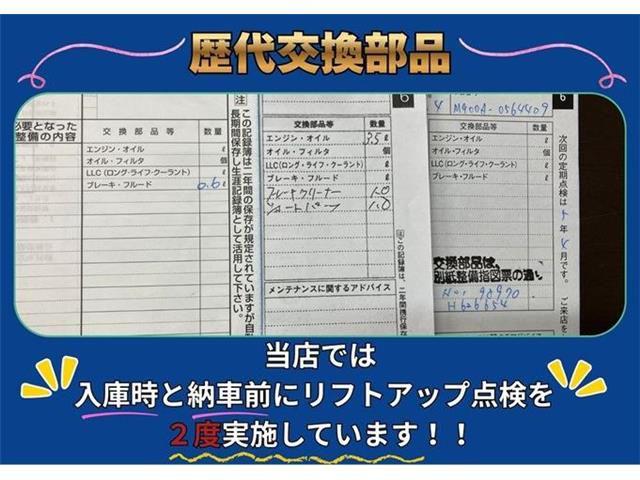 歴代交換部品
必要となった
整備の内容
交換部品等 数量
エンジン・オイル ℓ
オイル・フィルタ 個
LLC(ロング・ライフ・クーラント) ℓ
ブレーキ・フルード 0.6ℓ
注
この記録簿は二年間の保存が規定されていますが自動
長期間保存し生涯記録簿として活用して下さい。
交換部品等 数量
エンジン・オイル 3.5ℓ
オイル・フィルタ 個
LLC(ロング・ライフ・クーラント) ℓ
ブレーキ・フルード ℓ
ブレーキクリーナー 1.0
ショートパーツ 1.0
メンテナンスに関するアドバイス
6
注この記録簿は、二年間携行保存
M900A-0564409
6
交換部品等 数量
エンジン・オイル ℓ
オイル・フィルタ 個
LLC(ロング・ライフ・クーラント) ℓ
ブレーキ・フルード ℓ
交換部品は、
別紙整備指図票の通り
次回の定期点検は
年
月です。
ご来店を
当店では
入庫時と納車前にリフトアップ点検を
２度実施しています！！